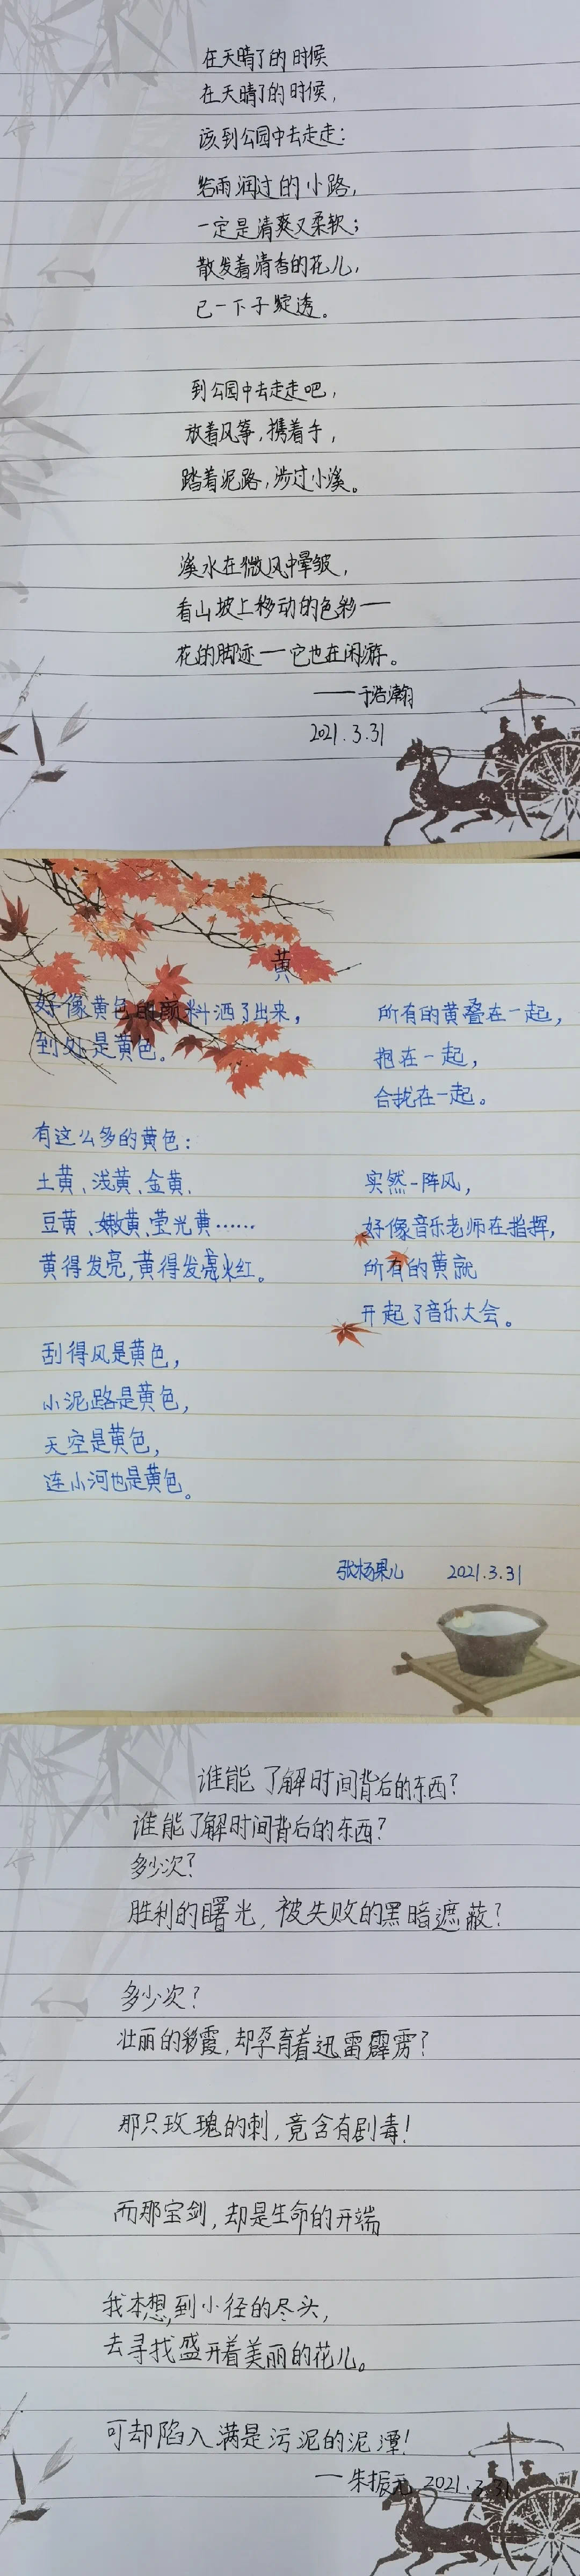 在天晴了的时候
在天晴了的时候，
该到公园中去走走：
给雨润过的小路，
一定是清爽又柔软；
散发着清香的花儿，
已一下子绽透。
到公园中去走走吧，
放着风筝，携着手，
踏着泥路，涉过小溪。
溪水在微风中晕皱，
看山坡上移动的色彩——
花的脚迹——它也在闲游。
——于浩瀚
2021.3.31
黄
好像黄色的颜料洒了出来，
到处是黄色。
有这么多的黄色：
土黄、浅黄、金黄、
豆黄、嫩黄、萤光黄……
黄得发亮，黄得发亮火红。
刮得风是黄色，
小泥路是黄色，
天空是黄色，
连小河也是黄色。
所有的黄叠在一起，
抱在一起，
合拢在一起。
突然一阵风，
好像音乐老师在指挥，
所有的黄就
开起了音乐大会。
张杨果儿 2021.3.31
谁能了解时间背后的东西？
谁能了解时间背后的东西？
多少次？
胜利的曙光，被失败的黑暗遮蔽？
多少次？
壮丽的彩霞，却孕育着迅雷霹雳？
那只玫瑰的刺，竟含有剧毒！
而那宝剑，却是生命的开端
我本想，到小径的尽头，
去寻找盛开着美丽的花儿。
可却陷入满是污泥的泥潭！
——朱振元 2021.3.31